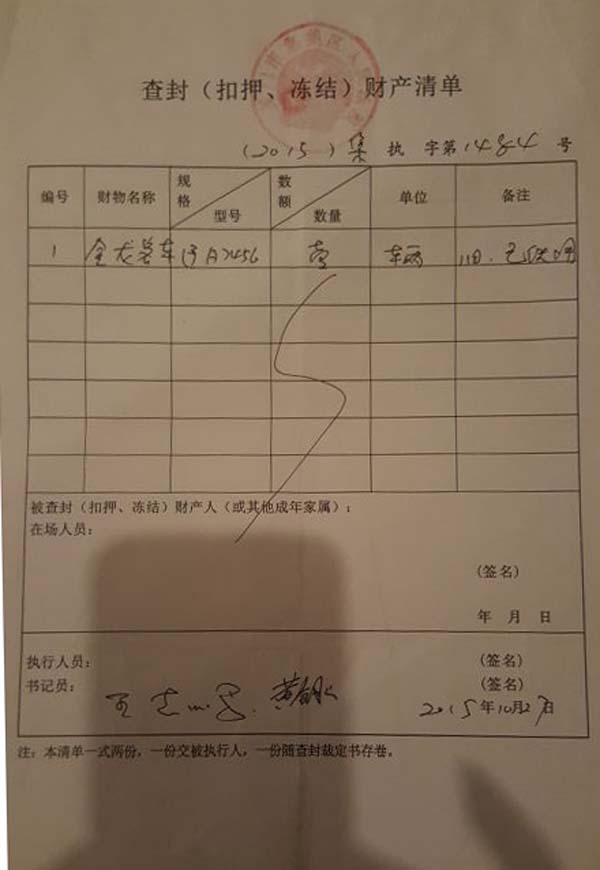 查封（扣押、冻结）财产清单
（2015）集 执 字第1484 号
编号 财物名称 规格 型号 数额 数量 单位 备注
1 金龙客车 A7456 壹 辆
被查封（扣押、冻结）财产人（或其他成年家属）：
在场人员：
（签名）
年 月 日
执行人员： （签名）
书记员： （签名）
2015年10月27日
注：本清单一式两份，一份交被执行人，一份随查封裁定书存卷。